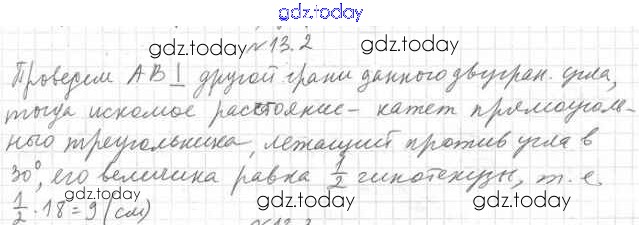 gdz.today
gdz.today №13.2 gdz.today
Проведем AB ⊥ другой грани данного двугран. угла,
gdz.today gdz.today
тогда искомое расстояние – катет прямоуголь-
ного треугольника, лежащий против угла в
30°, его величина равна 1/2 гипотенузы, т.е.
gdz.today gdz.today gdz.today
1/2 · 18 = 9 (см)
№13.3